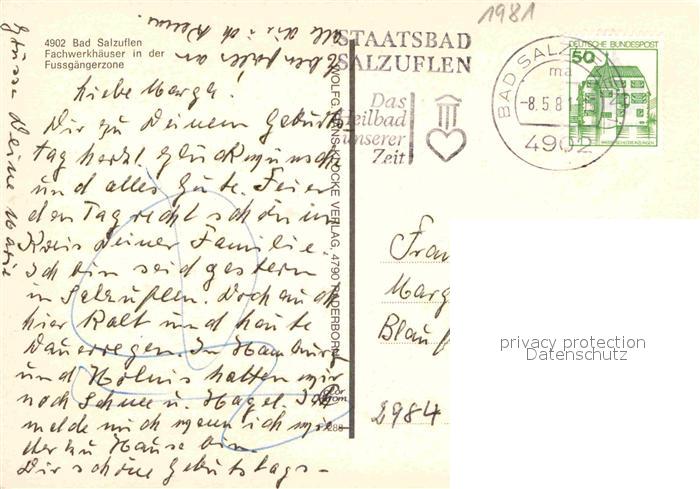 1981
4902 Bad Salzuflen
Fachwerkhäuser in der
Fussgängerzone
Liebe Marga!
Dir zu Deinem Geburts-
tag herzl. Glückwunsch
und alles Gute. Feier
den Tag recht schön im
Kreis Deiner Familie.
Ich bin seid gestern
in Salzuflen. Doch auch
hier Kalt und heute
Dauerregen. In Hamburg
und Hölnis hatten wir
noch Schnee u. Hagel. Ich
melde mich wenn ich wie
der zu Hause bin.
Dir schöne Geburtstags-
Grüsse Deine
alle die ich Kenne.
WOLFG. HANS KLOCKE VERLAG, 4790 PADERBORN
STAATSBAD
SALZUFLEN
Das
Heilbad
unserer
Zeit
BAD SALZUFLEN
-8.5.81
4902
DEUTSCHE BUNDESPOST
50
Frau
Marg
Blau
2984
privacy protection
Datenschutz